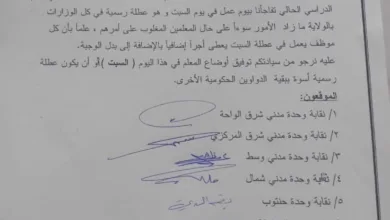 الدراسي الحالي تفاجأنا بيوم عمل في يوم السبت و هو عطلة رسمية في كل الوزارات
بالولاية ما زاد الأمور سوءاً على حال المعلمين المغلوب على أمرهم , علماً بأن كل
موظف يعمل في عطلة السبت يعطى أجراً إضافياً بالإضافة إلى بدل الوجبة.
عليه نرجو من سيادتكم توفيق أوضاع المعلم في هذا اليوم ( السبت ) أو أن يكون عطلة
رسمية أسوة ببقية الدواوين الحكومية الأخرى.
الموقعون:
١/ نقابة وحدة مدني شرق الواحة
٢/ نقابة وحدة مدني شرق المركزي
٣/ نقابة وحدة مدني وسط
٤/ نقابة وحدة مدني شمال
٥/ نقابة وحدة حنتوب